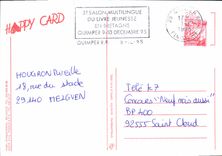 HAPPY CARD
3e SALON MULTILINGUE
DU LIVRE JEUNESSE
EN BRETAGNE
QUIMPER 9-10 DECEMBRE 93
QUIMPER
HOUGRON Murielle
18, rue du stade
29140 MELGVEN
Télé K7
Concours "Neuf mois aussi"
BP 400
92552 Saint Cloud